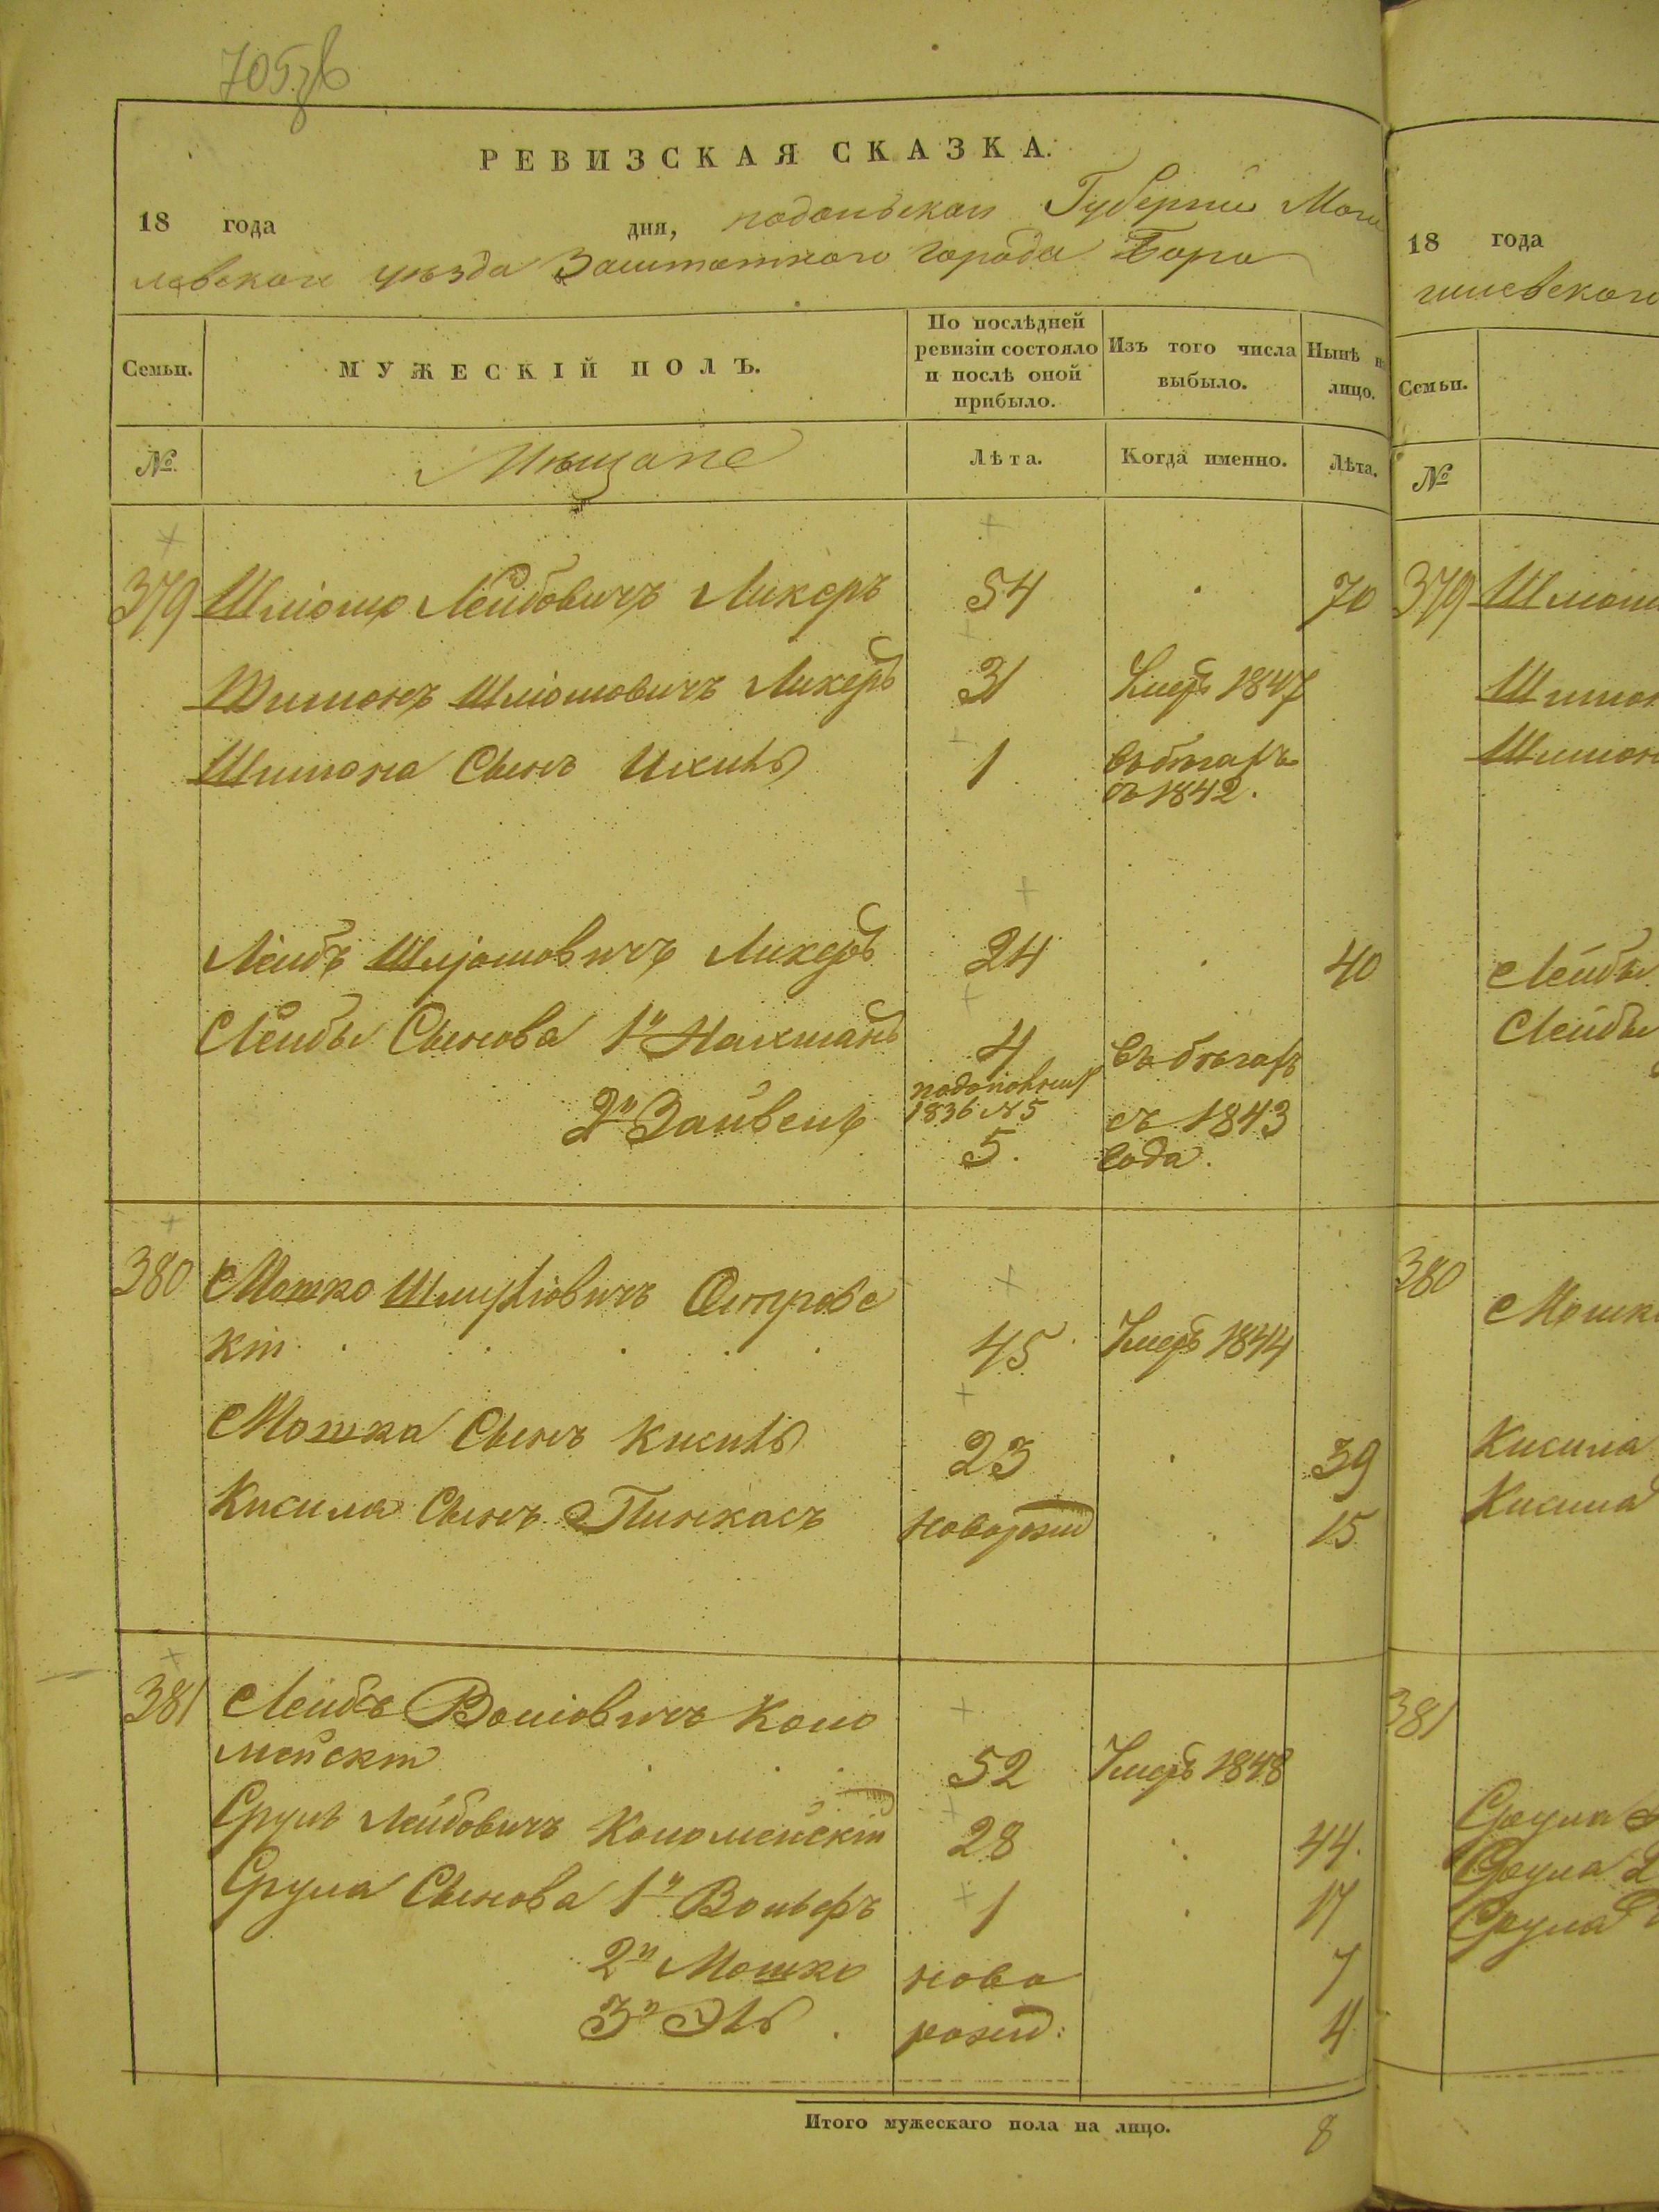 705
РЕВИЗСКАЯ СКАЗКА.
18 года дня, подольской Губерніи Моги
левского уѣзда Заштатного города Бара
Семьи. МУЖЕСКІЙ ПОЛЪ. По послѣдней ревизіи состояло и послѣ оной прибыло. Изъ того числа выбыло. Нынѣ на лицо.
№ Мѣщане Лѣта. Когда именно. Лѣта.
379 Шліома Лейбовичъ Ликеръ 54 70
Шимонъ Шліомовичъ Ликеръ 31 Умеръ 1847
Шимона Сынъ Ихиль 1 въ бѣгахъ
съ 1842.
Лейбъ Шліомовичъ Ликеръ 24 40
Лейбы Сыновья 1й Нахманъ 4 въ бѣгахъ
1836 №5
2й Зайвель 5. съ 1843
года.
380 Мошко Шмулiовичъ Островс
кій 45 Умеръ 1844
Мошка Сынъ Кисиль 23 39
Кисила Сынъ Пинкасъ новорожд 15
381 Лейбъ Волiовичъ Коло
мейскій 52 Умеръ 1848
Сруль Лейбовичъ Коломейскій 28 44.
Срула Сыновья 1й Вольфъ 1 17
2й Мошко ново 7
3й Эль рожд: 4
Итого мужескаго пола на лицо. 8
18 года
гилевского
Семьи.
№
379
380
Мошк
Кисила
Кисила
381
Срула
Срула
Срула